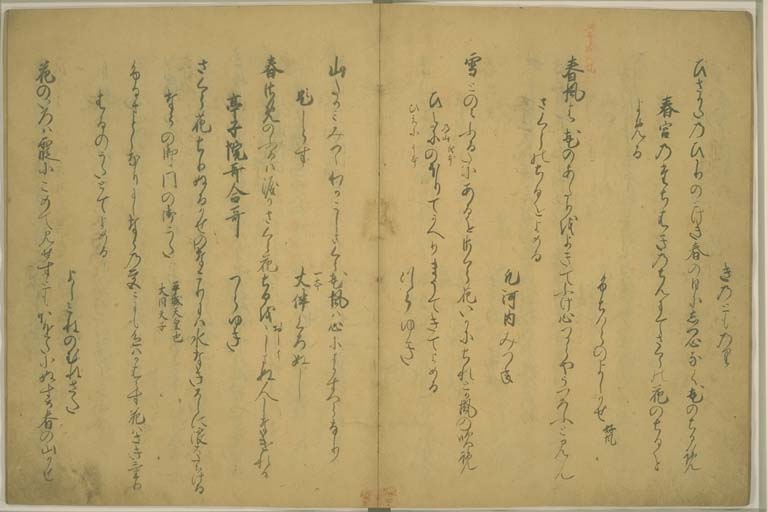 きのとものり
ひさかたのひかりのとけき春の日にしつ心なく花のちるらむ
春宮のたちはきのちんにてさくらの花のちるを
よめる
ふちはらのよしかせ 好風
春風は花のあたりをよきてふけ心つからやうつろふとみん
さくらのちるをよめる
凡河内みつね
雪とのみふるたにあるをさくら花いかにちれとか風の吹覧
ひえにのほりてかへりまうてきてよめる
つらゆき
山たかみみつゝわかこしさくら花風は心にまかすへらなり
題しらす 一本 大伴くろぬし
春雨のふるは涙かさくら花ちるをおしまぬ人しなけれは
亭子院哥合哥 つらゆき
さくら花ちりぬるかせのなこりには水なきそらに浪そたちける
ならの御門の御うた 平城天皇也 大同天子
ふるさとゝなりにしならの宮こにも色はかはらす花はさきけり
はるのうたとてよめる
よしみねのむねさた
花のいろは霞にこめて見せすともかをたにぬすめ春の山かせ